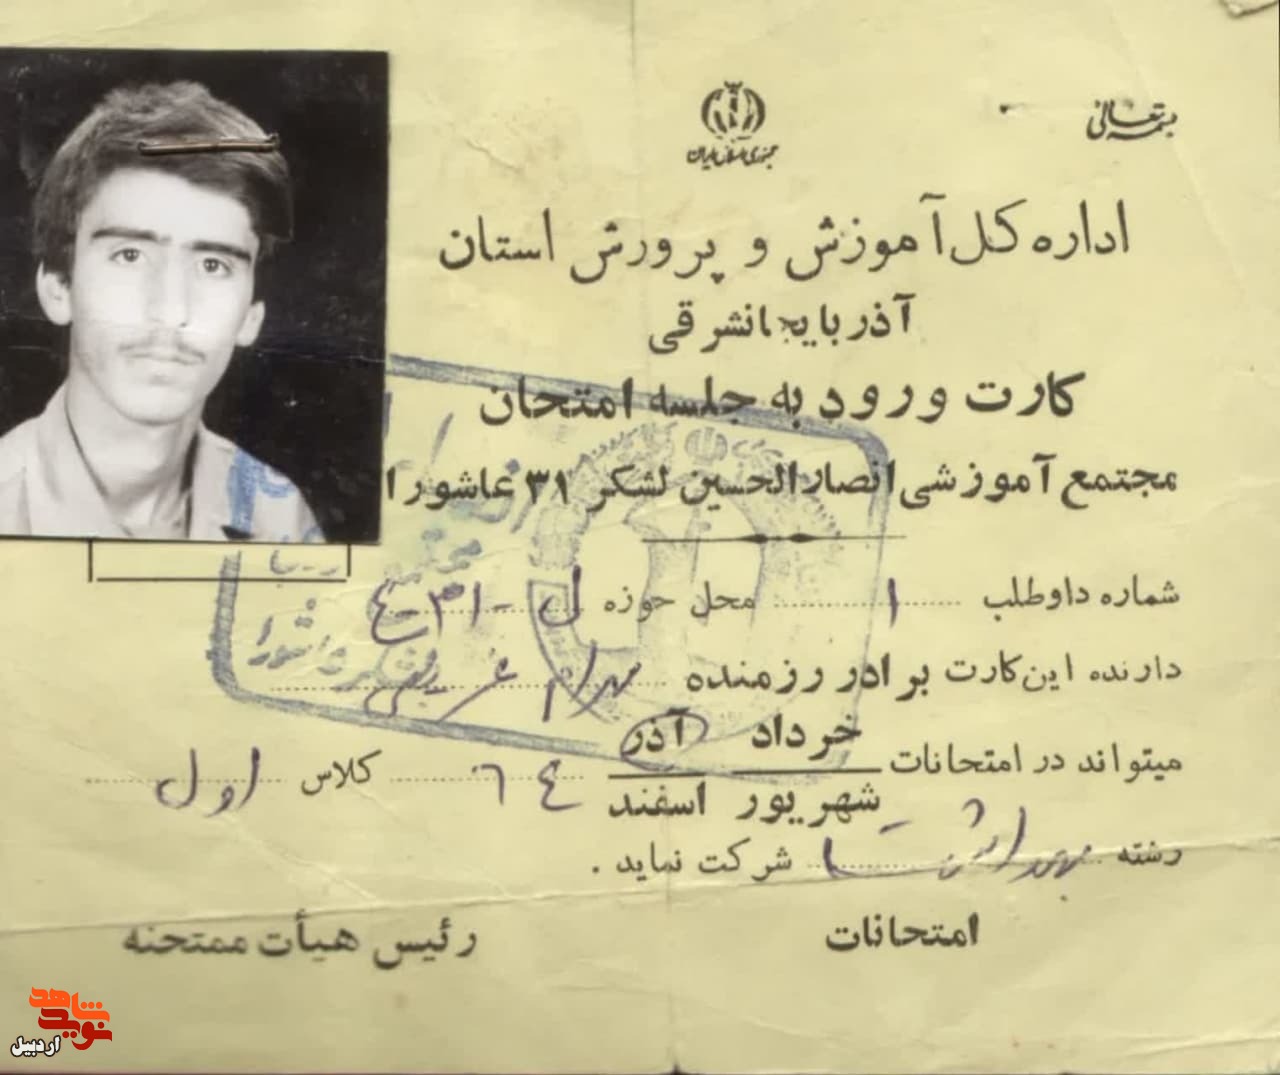 بسمه تعالی
جمهوری اسلامی ایران
اداره کل آموزش و پرورش استان
آذربایجانشرقی
کارت ورود به جلسه امتحان
مجتمع آموزشی انصارالحسین لشکر ۳۱ عاشورا
شماره داوطلب ۱ محل حوزه ل-۳۱-٤
دارنده این کارت برادر رزمنده
میتواند در امتحانات خرداد آذر
شهریور اسفند ٦٤ کلاس اول
رشته بهداشت شرکت نماید .
امتحانات
رئیس هیأت ممتحنه
لشکر عاشورا
نوید شاهد
اردبیل